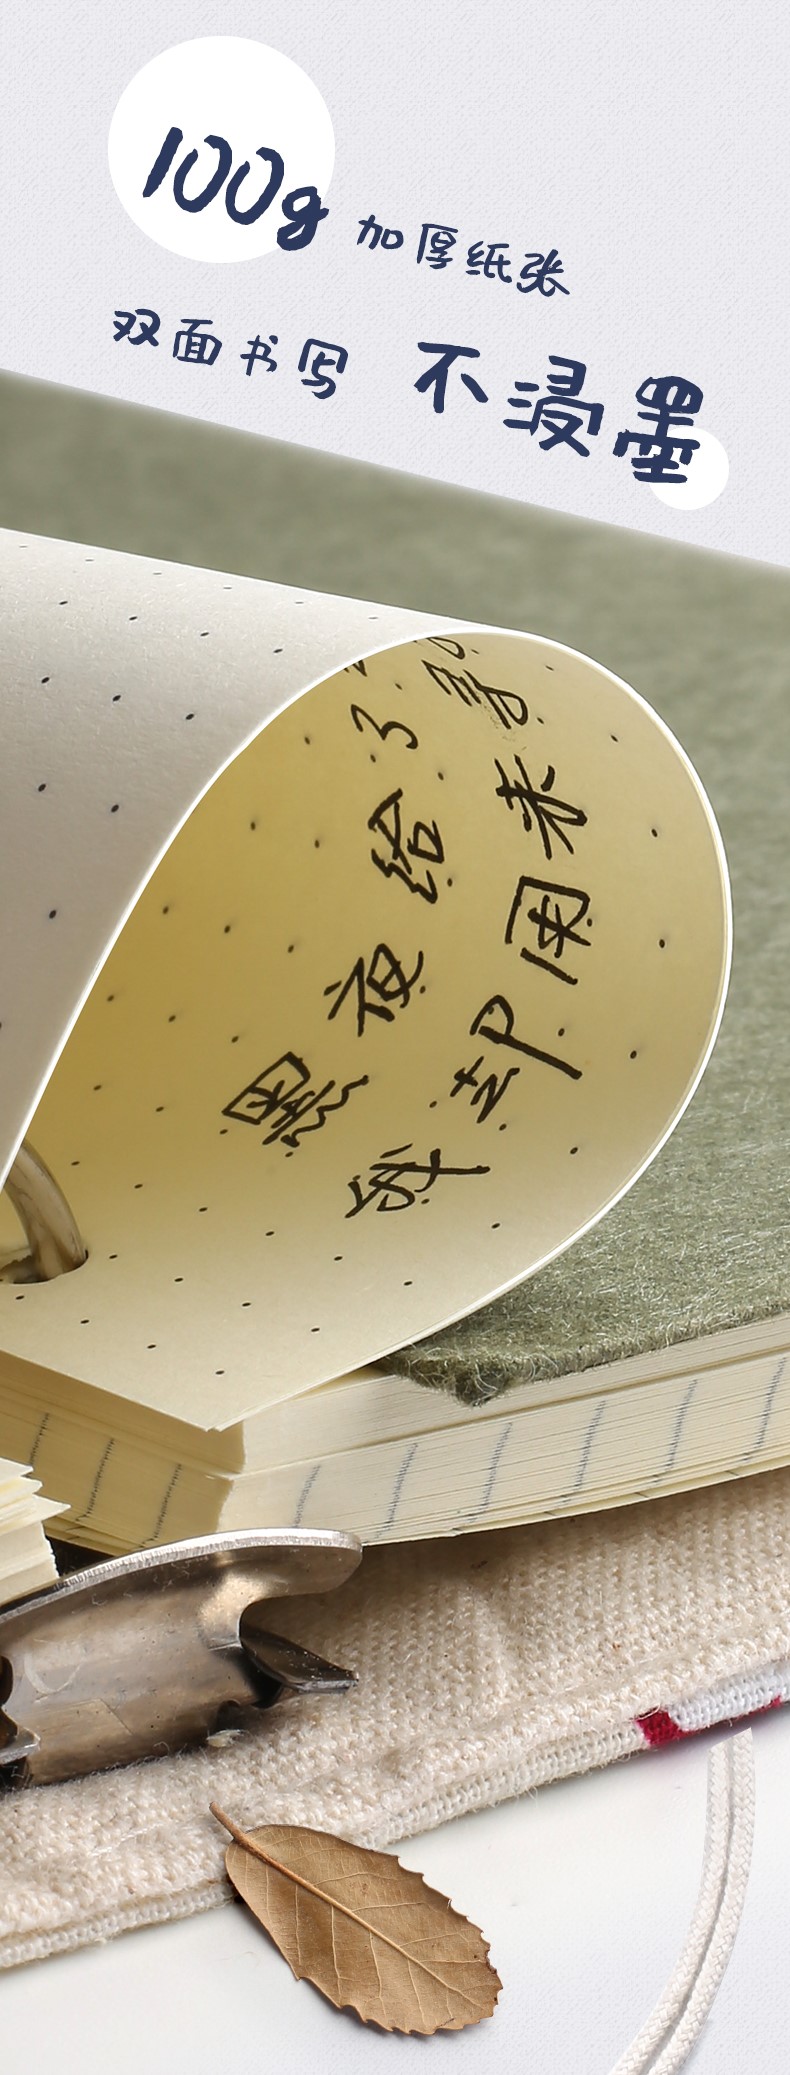 100g 加厚纸张
双面书写 不浸墨
黑夜给了
我却用来寻